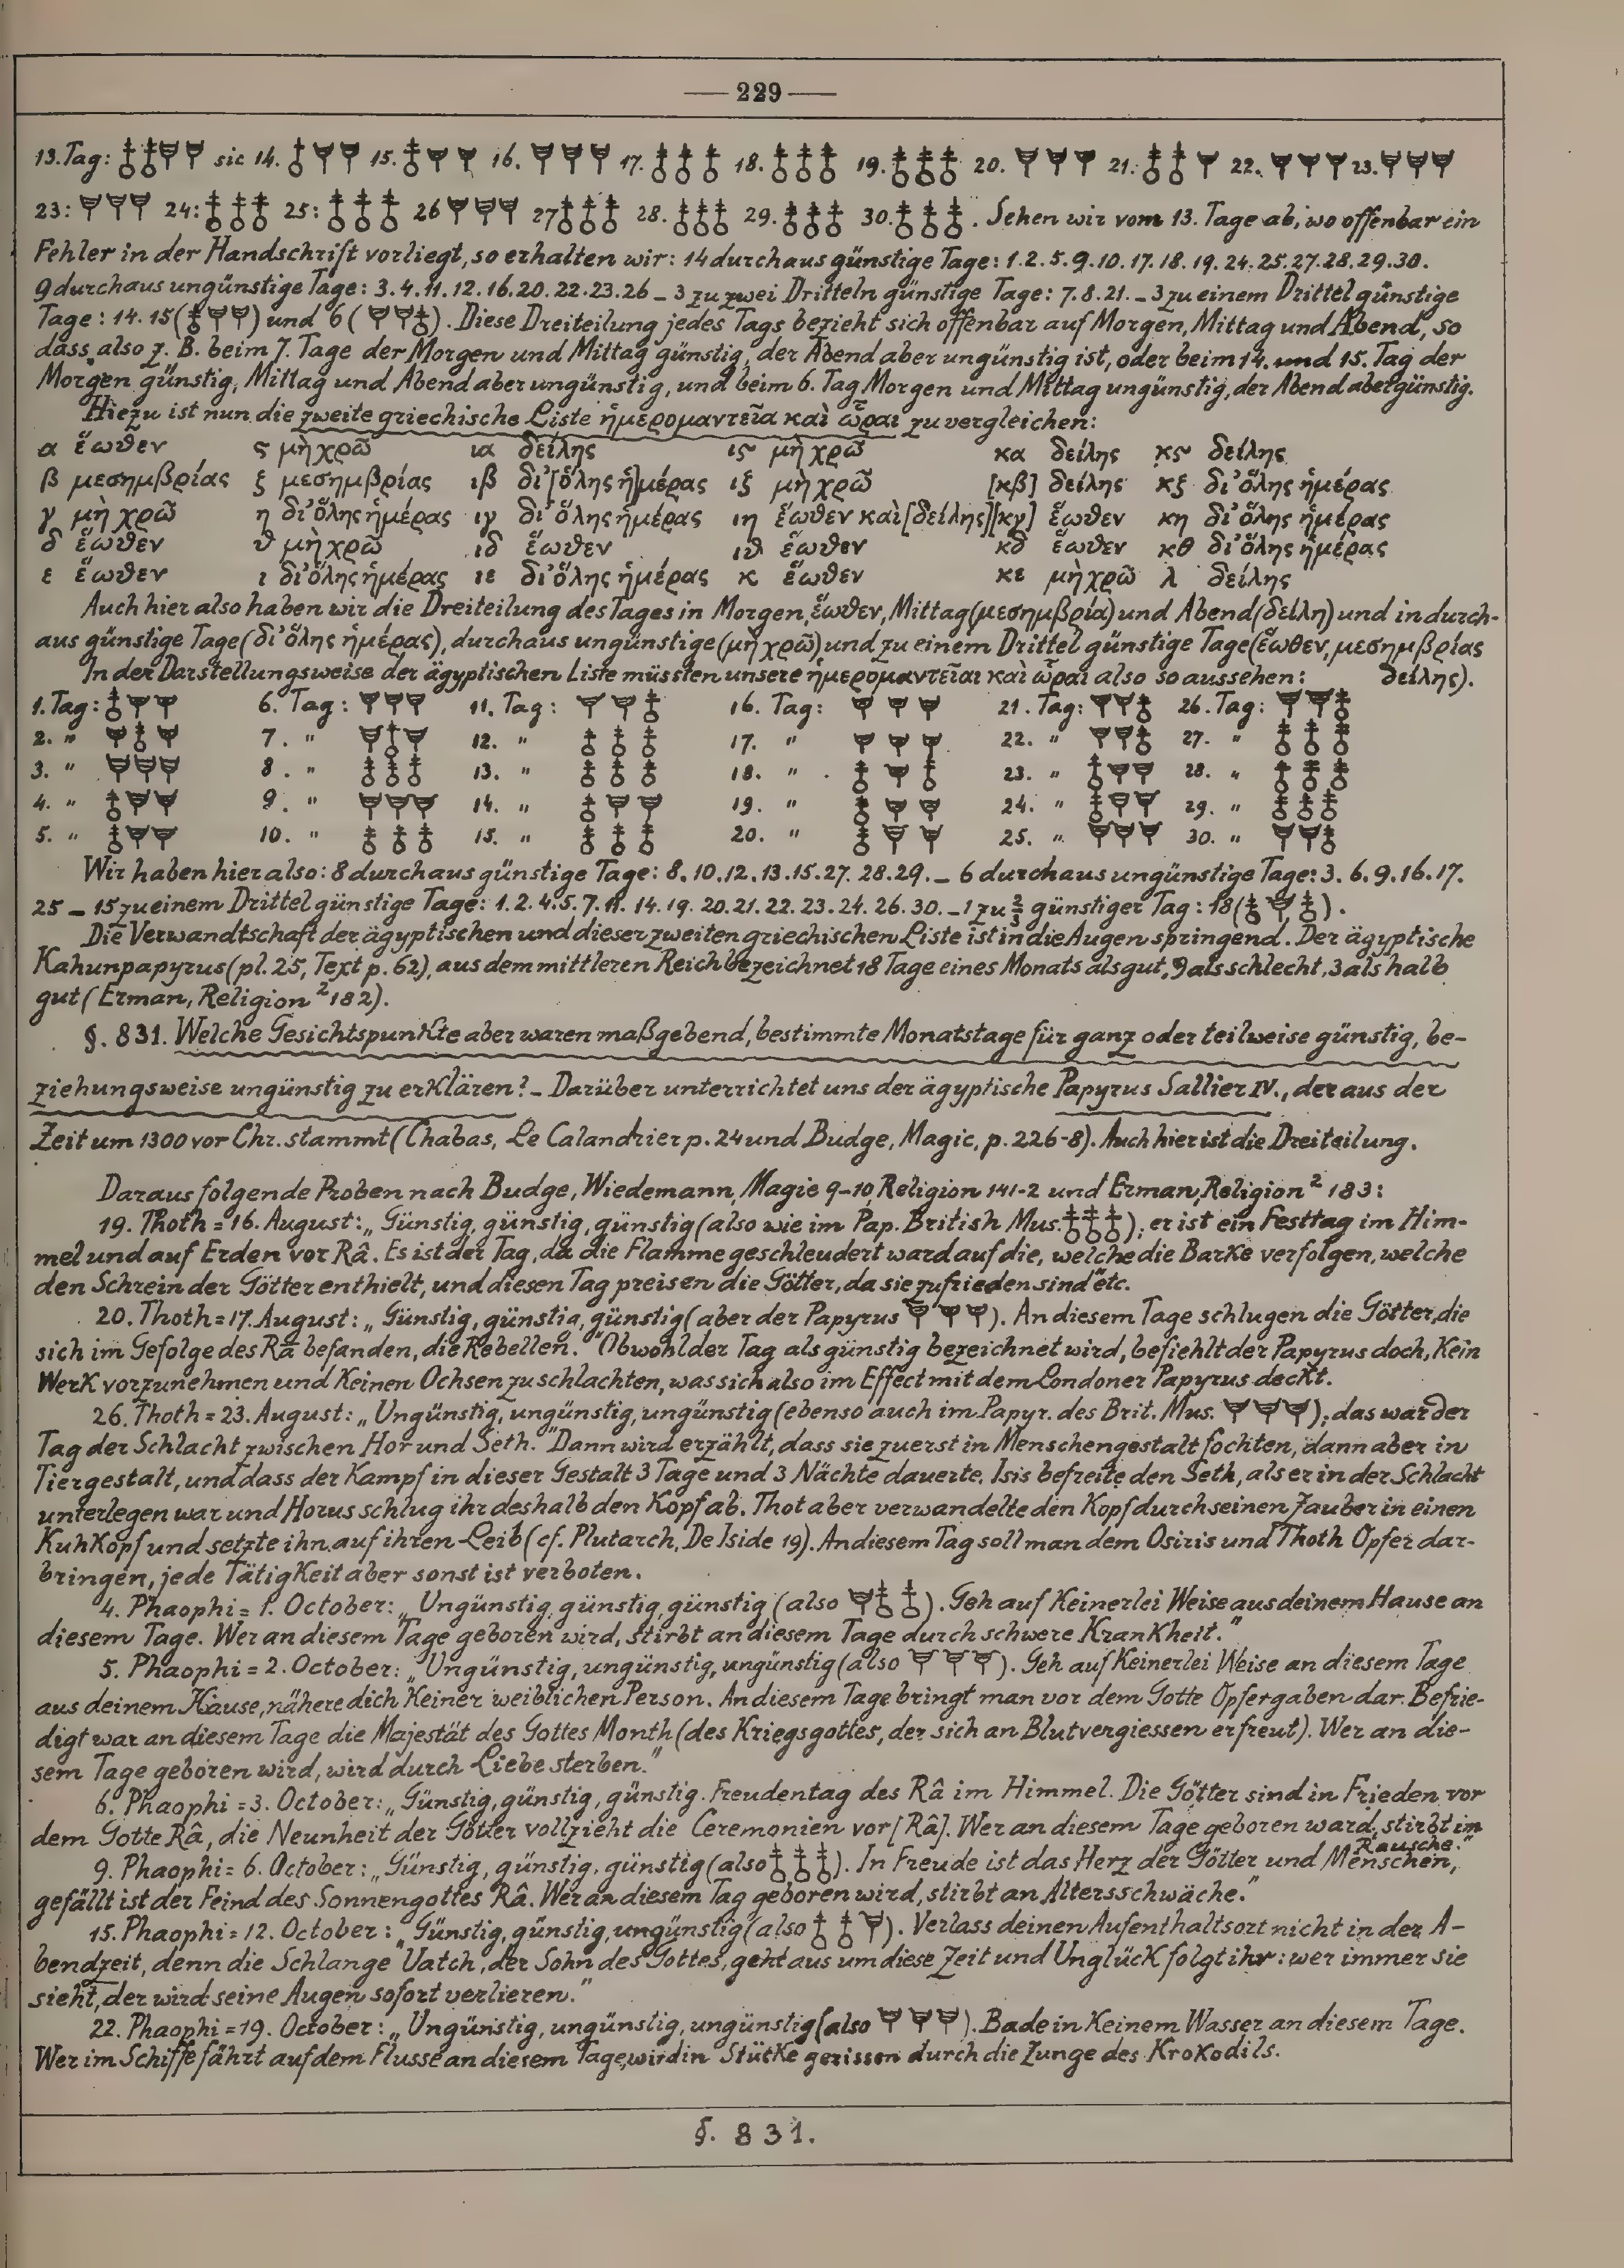 229
13. Tag: sic 14. 15. 16. 17. 18. 19. 20. 21: 22. 23.
23: 24: 25: 26 27 28. 29. 30. . Sehen wir vom 13. Tage ab, wo offenbar ein
Fehler in der Handschrift vorliegt, so erhalten wir: 14 durchaus günstige Tage: 1. 2. 5. 9. 10. 17. 18. 19. 24. 25. 27. 28. 29. 30.
9 durchaus ungünstige Tage: 3. 4. 11. 12. 16. 20. 22. 23. 26 – 3 zu zwei Dritteln günstige Tage: 7. 8. 21. – 3 zu einem Drittel günstige
Tage: 14. 15 ( ) und 6 ( ). Diese Dreiteilung jedes Tags bezieht sich offenbar auf Morgen, Mittag und Abend, so
dass also z. B. beim 7. Tage der Morgen und Mittag günstig, der Abend aber ungünstig ist, oder beim 14. und 15. Tag der
Morgen günstig, Mittag und Abend aber ungünstig, und beim 6. Tag Morgen und Mittag ungünstig, der Abend aber günstig.
Hiezu ist nun die zweite griechische Liste ἡμερομαντεῖα καὶ ὧραι zu vergleichen:
α ἕωθεν ς μὴ χρῶ ια δείλης ις μὴ χρῶ κα δείλης κς δείλης
β μεσημβρίας ξ μεσημβρίας ιβ δι' [ὅλης ἡ]μέρας ιξ μὴ χρῶ [κβ] δείλης κξ δι' ὅλης ἡμέρας
γ μὴ χρῶ η δι' ὅλης ἡμέρας ιγ δι' ὅλης ἡμέρας ιη ἕωθεν καὶ [δείλης] [κγ] ἕωθεν κη δι' ὅλης ἡμέρας
δ ἕωθεν ϑ μὴ χρῶ ιδ ἕωθεν ιϑ ἕωθεν κδ ἕωθεν κθ δι' ὅλης ἡμέρας
ε ἕωθεν ι δι' ὅλης ἡμέρας ιε δι' ὅλης ἡμέρας κ ἕωθεν κε μὴ χρῶ λ δείλης
Auch hier also haben wir die Dreiteilung des Tages in Morgen, ἕωθεν, Mittag (μεσημβρία) und Abend (δείλη) und in durch-
aus günstige Tage (δι' ὅλης ἡμέρας), durchaus ungünstige (μὴ χρῶ) und zu einem Drittel günstige Tage (ἕωθεν, μεσημβρίας
In der Darstellungsweise der ägyptischen Liste müssten unsere ἡμερομαντεῖαι καὶ ὧραι also so aussehen: δείλης).
1. Tag: 6. Tag: 11. Tag: 16. Tag: 21. Tag: 26. Tag:
2. " 7. " 12. " 17. " 22. " 27. "
3. " 8. " 13. " 18. " 23. " 28. "
4. " 9. " 14. " 19. " 24. " 29. "
5. " 10. " 15. " 20. " 25. " 30. "
Wir haben hier also: 8 durchaus günstige Tage: 8. 10. 12. 13. 15. 27. 28. 29. – 6 durchaus ungünstige Tage: 3. 6. 9. 16. 17.
25 – 15 zu einem Drittel günstige Tage: 1. 2. 4. 5. 7. 11. 14. 19. 20. 21. 22. 23. 24. 26. 30. – 1 zu 2/3 günstiger Tag: 18 ( ).
Die Verwandtschaft der ägyptischen und dieser zweiten griechischen Liste ist in die Augen springend. Der ägyptische
Kahunpapyrus (pl. 25, Text p. 62), aus dem mittleren Reich bezeichnet 18 Tage eines Monats als gut, 9 als schlecht, 3 als halb
gut (Erman, Religion² 182).
§. 831. Welche Gesichtspunkte aber waren maßgebend, bestimmte Monatstage für ganz oder teilweise günstig, be-
ziehungsweise ungünstig zu erklären? – Darüber unterrichtet uns der ägyptische Papyrus Sallier IV., der aus der
Zeit um 1300 vor Chr. stammt (Chabas, Le Calandrier p. 24 und Budge, Magic, p. 226-8). Auch hier ist die Dreiteilung.
Daraus folgende Proben nach Budge, Wiedemann, Magie 9–10, Religion 141-2 und Erman, Religion² 183:
19. Thoth = 16. August: „Günstig, günstig, günstig (also wie im Pap. British Mus. ); er ist ein Festtag im Him-
mel und auf Erden vor Râ. Es ist der Tag, da die Flamme geschleudert ward auf die, welche die Barke verfolgen, welche
den Schrein der Götter enthielt, und diesen Tag preisen die Götter, da sie zufrieden sind" etc.
20. Thoth = 17. August: „Günstig, günstig, günstig (aber der Papyrus ). An diesem Tage schlugen die Götter, die
sich im Gefolge des Râ befanden, die Rebellen." Obwohl der Tag als günstig bezeichnet wird, befiehlt der Papyrus doch, kein
Werk vorzunehmen und keinen Ochsen zu schlachten, was sich also im Effect mit dem Londoner Papyrus deckt.
26. Thoth = 23. August: „Ungünstig, ungünstig, ungünstig (ebenso auch im Papyr. des Brit. Mus. ); das war der
Tag der Schlacht zwischen Hor und Seth." Dann wird erzählt, dass sie zuerst in Menschengestalt fochten, dann aber in
Tiergestalt, und dass der Kampf in dieser Gestalt 3 Tage und 3 Nächte dauerte. Isis befreite den Seth, als er in der Schlacht
unterlegen war und Horus schlug ihr deshalb den Kopf ab. Thot aber verwandelte den Kopf durch seinen Zauber in einen
Kuhkopf und setzte ihn auf ihren Leib (cf. Plutarch, De Iside 19). An diesem Tag soll man dem Osiris und Thoth Opfer dar-
bringen, jede Tätigkeit aber sonst ist verboten.
4. Phaophi = 1. October: „Ungünstig, günstig, günstig (also ). Geh auf keinerlei Weise aus deinem Hause an
diesem Tage. Wer an diesem Tage geboren wird, stirbt an diesem Tage durch schwere Krankheit."
5. Phaophi = 2. October: „Ungünstig, ungünstig, ungünstig (also ). Geh auf keinerlei Weise an diesem Tage
aus deinem Hause, nähere dich keiner weiblichen Person. An diesem Tage bringt man vor dem Gotte Opfergaben dar. Befrie-
digt war an diesem Tage die Majestät des Gottes Month (des Kriegsgottes, der sich an Blutvergiessen erfreut). Wer an die-
sem Tage geboren wird, wird durch Liebe sterben."
6. Phaophi = 3. October: „Günstig, günstig, günstig. Freudentag des Râ im Himmel. Die Götter sind in Frieden vor
dem Gotte Râ, die Neunheit der Götter vollzieht die Ceremonien vor [Râ]. Wer an diesem Tage geboren ward, stirbt im
Rausche."
9. Phaophi = 6. October: „Günstig, günstig, günstig (also ). In Freude ist das Herz der Götter und Menschen,
gefällt ist der Feind des Sonnengottes Râ. Wer an diesem Tag geboren wird, stirbt an Altersschwäche."
15. Phaophi = 12. October: „Günstig, günstig, ungünstig (also ). Verlass deinen Aufenthaltsort nicht in der A-
bendzeit, denn die Schlange Uatch, der Sohn des Gottes, geht aus um diese Zeit und Unglück folgt ihr: wer immer sie
sieht, der wird seine Augen sofort verlieren."
22. Phaophi = 19. October: „Ungünstig, ungünstig, ungünstig (also ). Bade in keinem Wasser an diesem Tage.
Wer im Schiffe fährt auf dem Flusse an diesem Tage, wird in Stücke gerissen durch die Zunge des Krokodils.
§. 831.